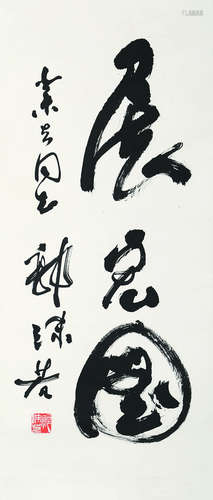 展宏图
素芝同志
郭沫若